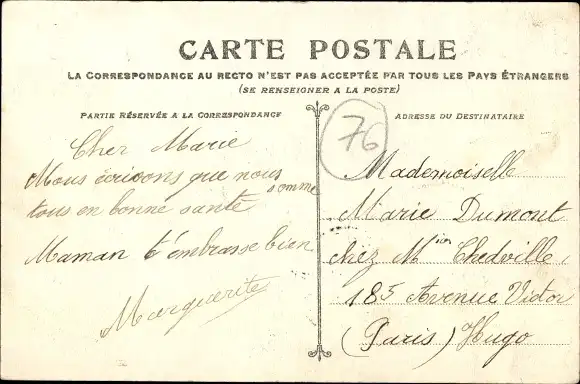 CARTE POSTALE
LA CORRESPONDANCE AU RECTO N'EST PAS ACCEPTÉE PAR TOUS LES PAYS ÉTRANGERS
(SE RENSEIGNER A LA POSTE)
PARTIE RÉSERVÉE A LA CORRESPONDANCE
Cher Marie
Nous écrivons que nous somme
tous en bonne santé
Maman t'embrasse bien
Marguerite
76
ADRESSE DU DESTINATAIRE
Mademoiselle
Marie Dumont
chez Chedville
185 Avenue Victor
(Paris) Hugo